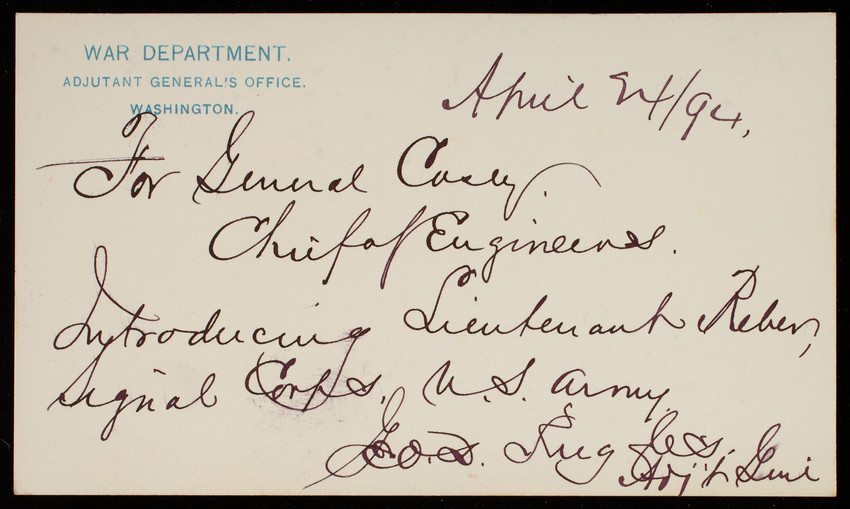 WAR DEPARTMENT.
ADJUTANT GENERAL'S OFFICE.
WASHINGTON.
April 24/94,
For General Casey.
Chief of Engineers.
Introducing Lieutenant Reber,
Signal Corps, U.S. Army.
Geo. D. Ruggles.
Adj't Genl